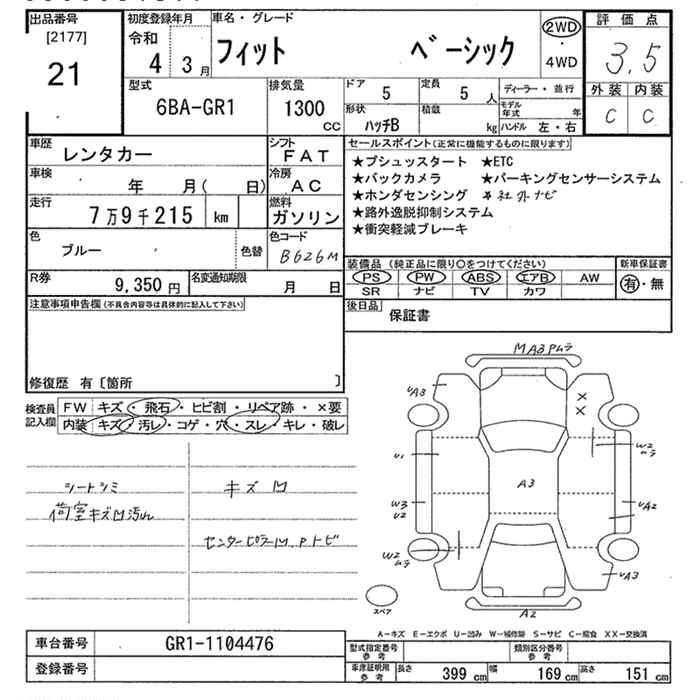 出品番号
[2177]
21
初度登録年月
令和
4 3月
車名・グレード
フィット ベーシック
2WD
・
4WD
評価点
3.5
外装 内装
C C
型式
6BA-GR1
排気量
1300
CC
ドア
5
定員
5人
形状
ハッチB
積載
kg
ディーラー・並行
モデル年式 年
ハンドル 左・右
車歴
レンタカー
シフト
FAT
車検
年 月( 日)
冷房
AC
走行
7万9千215 km
燃料
ガソリン
色
ブルー
色替
色コード
B626M
R券
9,350円
名変通知期限
月 日
セールスポイント(正常に機能するものに限ります)
★プシュッスタート ★ETC
★バックカメラ ★パーキングセンサーシステム
★ホンダセンシング ★社外ナビ
★路外逸脱抑制システム
★衝突軽減ブレーキ
装備品(純正品に限り○をつけてください)
PS PW ABS エアB AW
SR ナビ TV カワ
新車保証書
有・無
後日品
保証書
注意事項申告欄(不具合内容等は具体的に記入して下さい)
修復歴 有〔箇所 〕
検査員
記入欄
FW キズ・飛石・ヒビ割・リペア跡・×要
内装 キズ・汚レ・コゲ・穴・スレ・キレ・破レ
シートシミ
荷室キズ凹汚れ
キズ凹
センターピラー凹.Pトビ
MA3 Pムラ
UA3
×
×
U1
W2
ムラ
A3
W3
U2
UA2
W2
ムラ
UA3
A2
スペア
A-キズ E-エクボ U-凹み W-補修跡 S-サビ C-腐食 XX-交換済
車台番号
GR1-1104476
登録番号
型式指定番号
参考
類別区分番号
参考
車庫証明用
参考
長さ
399 cm
幅
169 cm
高さ
151 cm